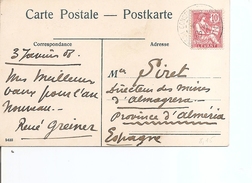 Carte Postale — Postkarte
Correspondance
Adresse
3 Janvier 08.
Mes Meilleurs
vœux pour l'an
Nouveau. —
René Greiner
Mr Siret
Directeur des mines
d'Almagrera
Province d'Alméria
Espagne
10
LEVANT